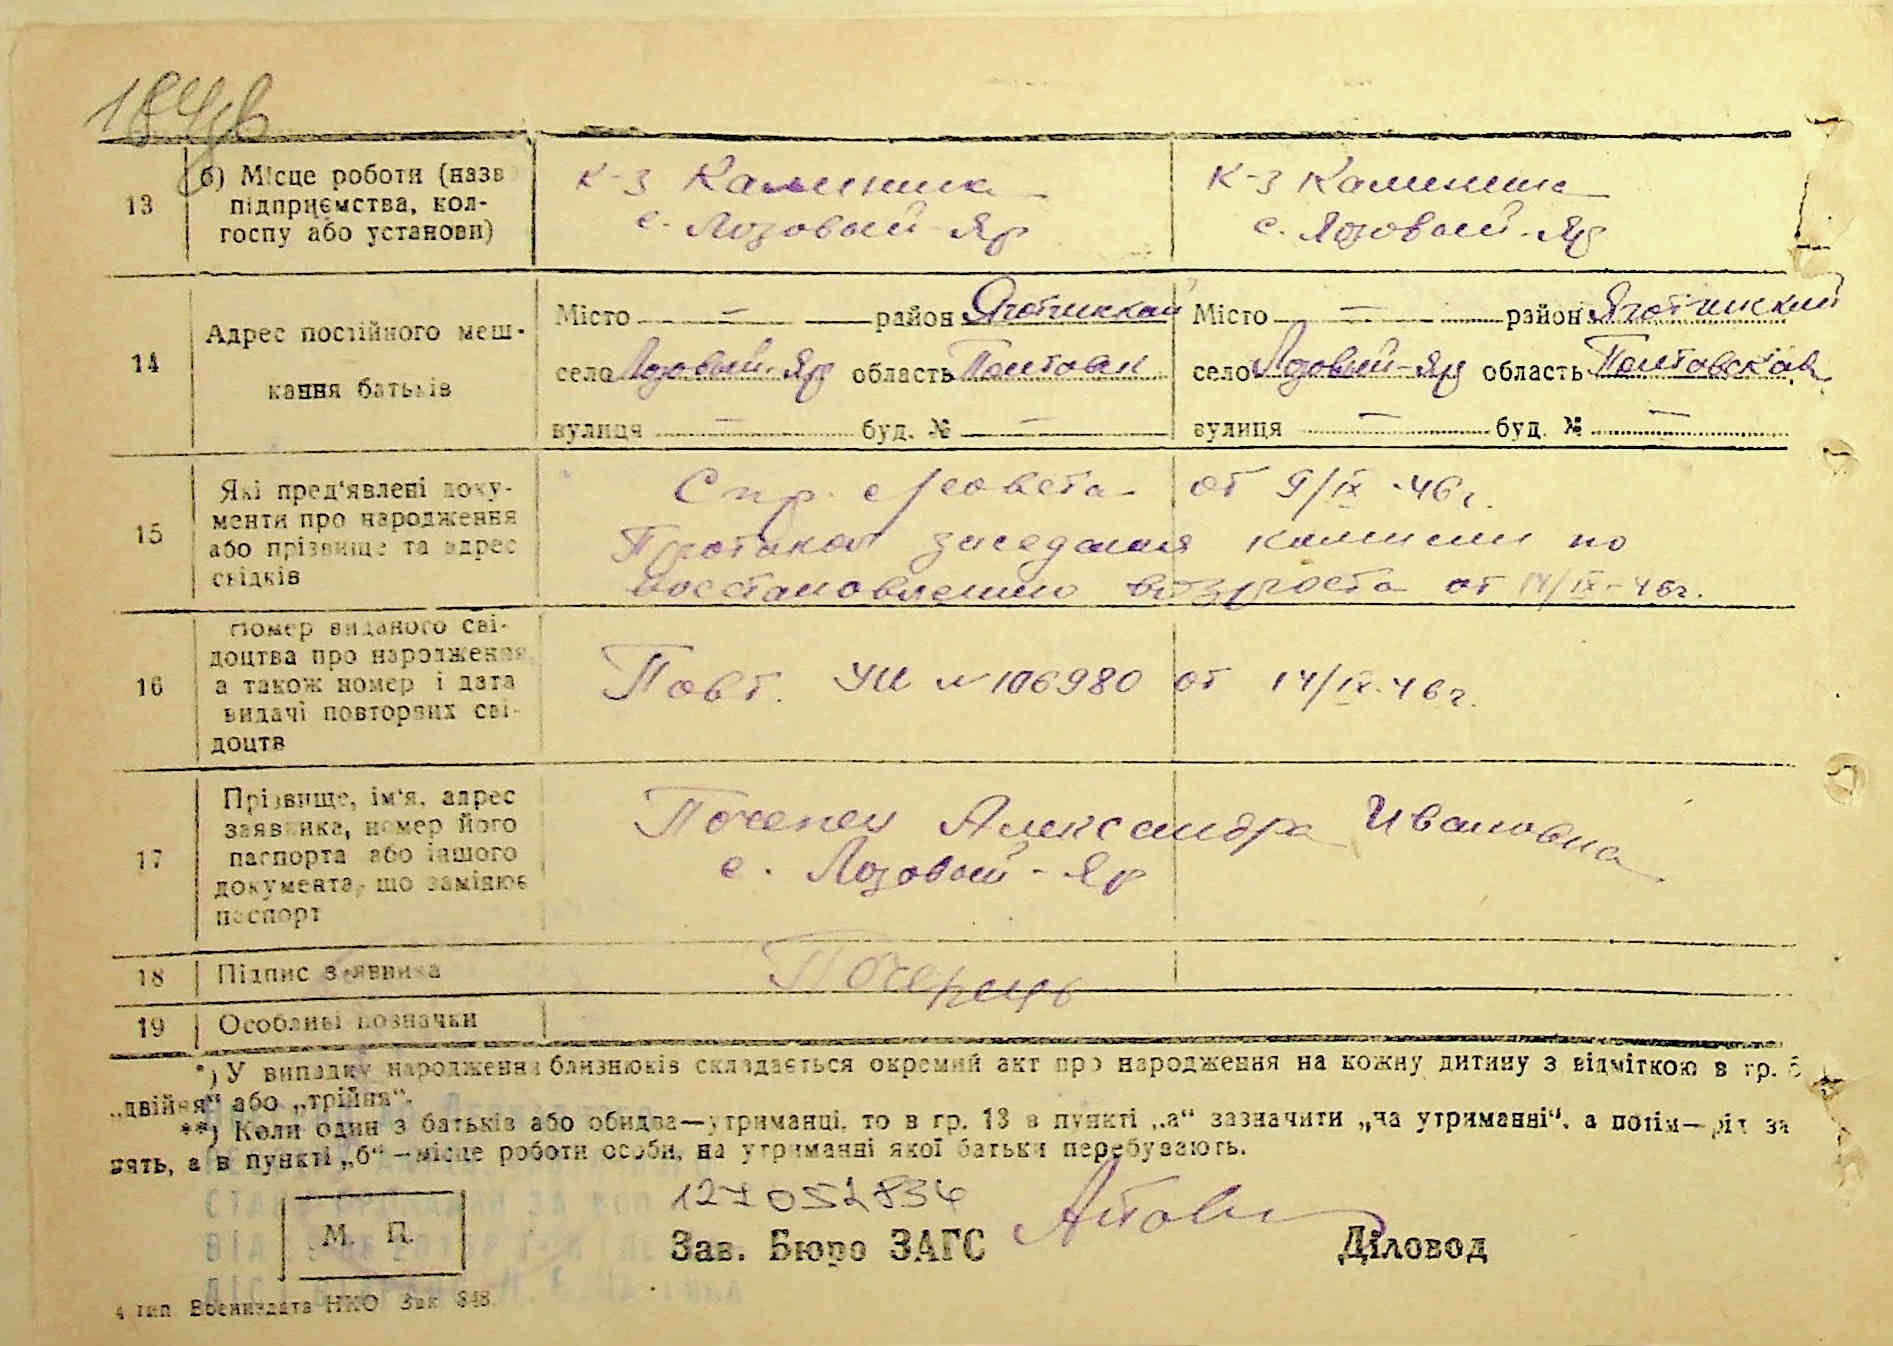 13 б) Місце роботи (назв підприємства, колгоспу або установи)
к-з Калинина
с. Лозовый-Яр
к-з Калинина
с. Лозовый-Яр
14 Адрес постійного мешкання батьків
Місто — район Яготинский
село Лозовый-Яр область Полтавск
вулиця — буд. № —
Місто — район Яготинский
село Лозовый-Яр область Полтавская
вулиця — буд. № —
15 Які пред'явлені документи про народження або прізвище та адрес свідків
Спр. с/совета от 9/IX-46г.
Протокол заседания комисии по
восстановлению возроста от 14/IX-46г.
16 Номер виданого свідоцтва про народження, а також номер і дата видачі повторних свідоцтв
Повт. УШ № 106980 от 14/IX-46г.
17 Прізвище, ім'я, адрес заявника, номер його паспорта або іншого документа, що замінює паспорт
Почепец Александра Ивановна
с. Лозовый-Яр
18 Підпис заявника
19 Особливі позначки
*) У випадку народження близнюків складається окремий акт про народження на кожну дитину з відміткою в гр. 6
„двійня" або „трійня".
**) Коли один з батьків або обидва—утриманці, то в гр. 13 в пункті „а" зазначити „на утриманні", а потім—рід за
нять, а в пункті „б"—місце роботи особи, на утриманні якої батьки перебувають.
М. П.
Зав. Бюро ЗАГС
Діловод
4 тип. Воениздата НКО Зак 848.